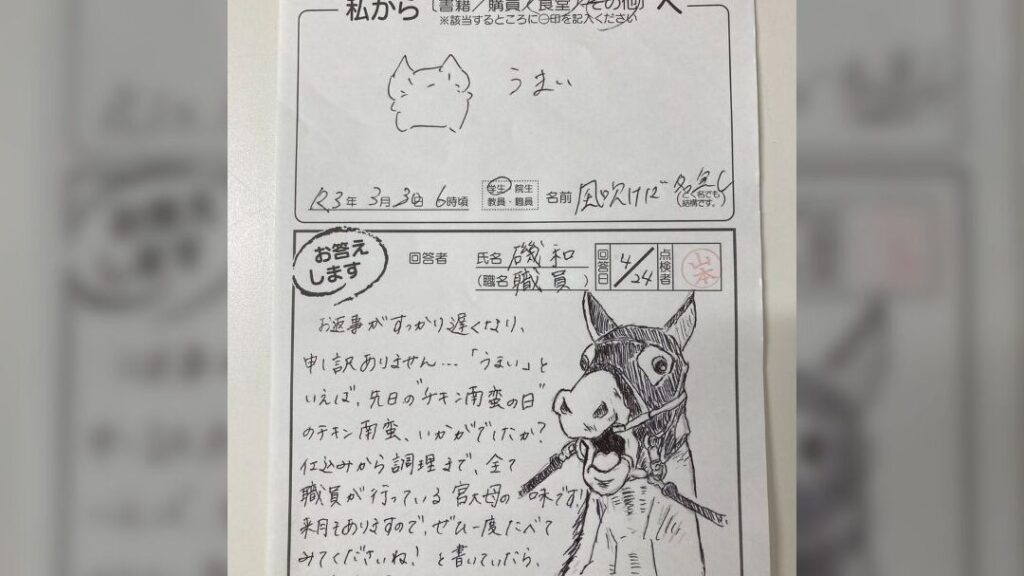 私から〔書籍／購買／食堂／その他〕へ
※該当するところに○印を記入ください
うまい
R3年 3月 3日 6時頃
学生 院生
教員・職員
名前 風吹けば名無し
(匿名でも結構です。)
お答えします
回答者
氏名 磯和
(職名 職員)
回答日 4/24
点検者 山本
お返事がすっかり遅くなり、
申し訳ありません…「うまい」と
いえば、先日の"チキン南蛮の日"
のチキン南蛮、いかがでしたか?
仕込みから調理まで、全て
職員が行っている 宮大母の 味です!
来月もありますので、ぜひ一度たべて
みてくださいね! と書いていたら、